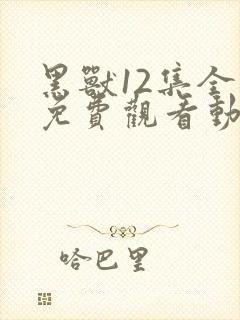 黑獸12集全
免費觀看動
哈巴里